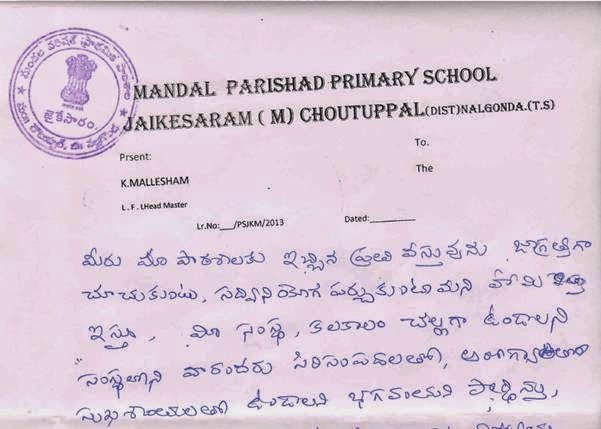 MANDAL PARISHAD PRIMARY SCHOOL
JAIKESARAM ( M) CHOUTUPPAL(DIST)NALGONDA.(T.S)
జైకేసారం.
Prsent:
To.
The
K.MALLESHAM
L . F . LHead Master
Lr.No:___/PSJKM/2013
Dated:________
మీరు మా పాఠశాలకు ఇచ్చిన ప్రతి వస్తువును జాగ్రత్తగా
చూచుకుంటు, సద్వినియోగ పర్చుకుంటామని హామి
ఇస్తూ, మీ సంస్థ, కలకాలం చల్లగా ఉండాలని
సంస్థలోని వారందరు సిరిసంపదలతో,
సుఖశాంతులతో ఉండాలని భగవంతుని ప్రార్థిస్తూ,